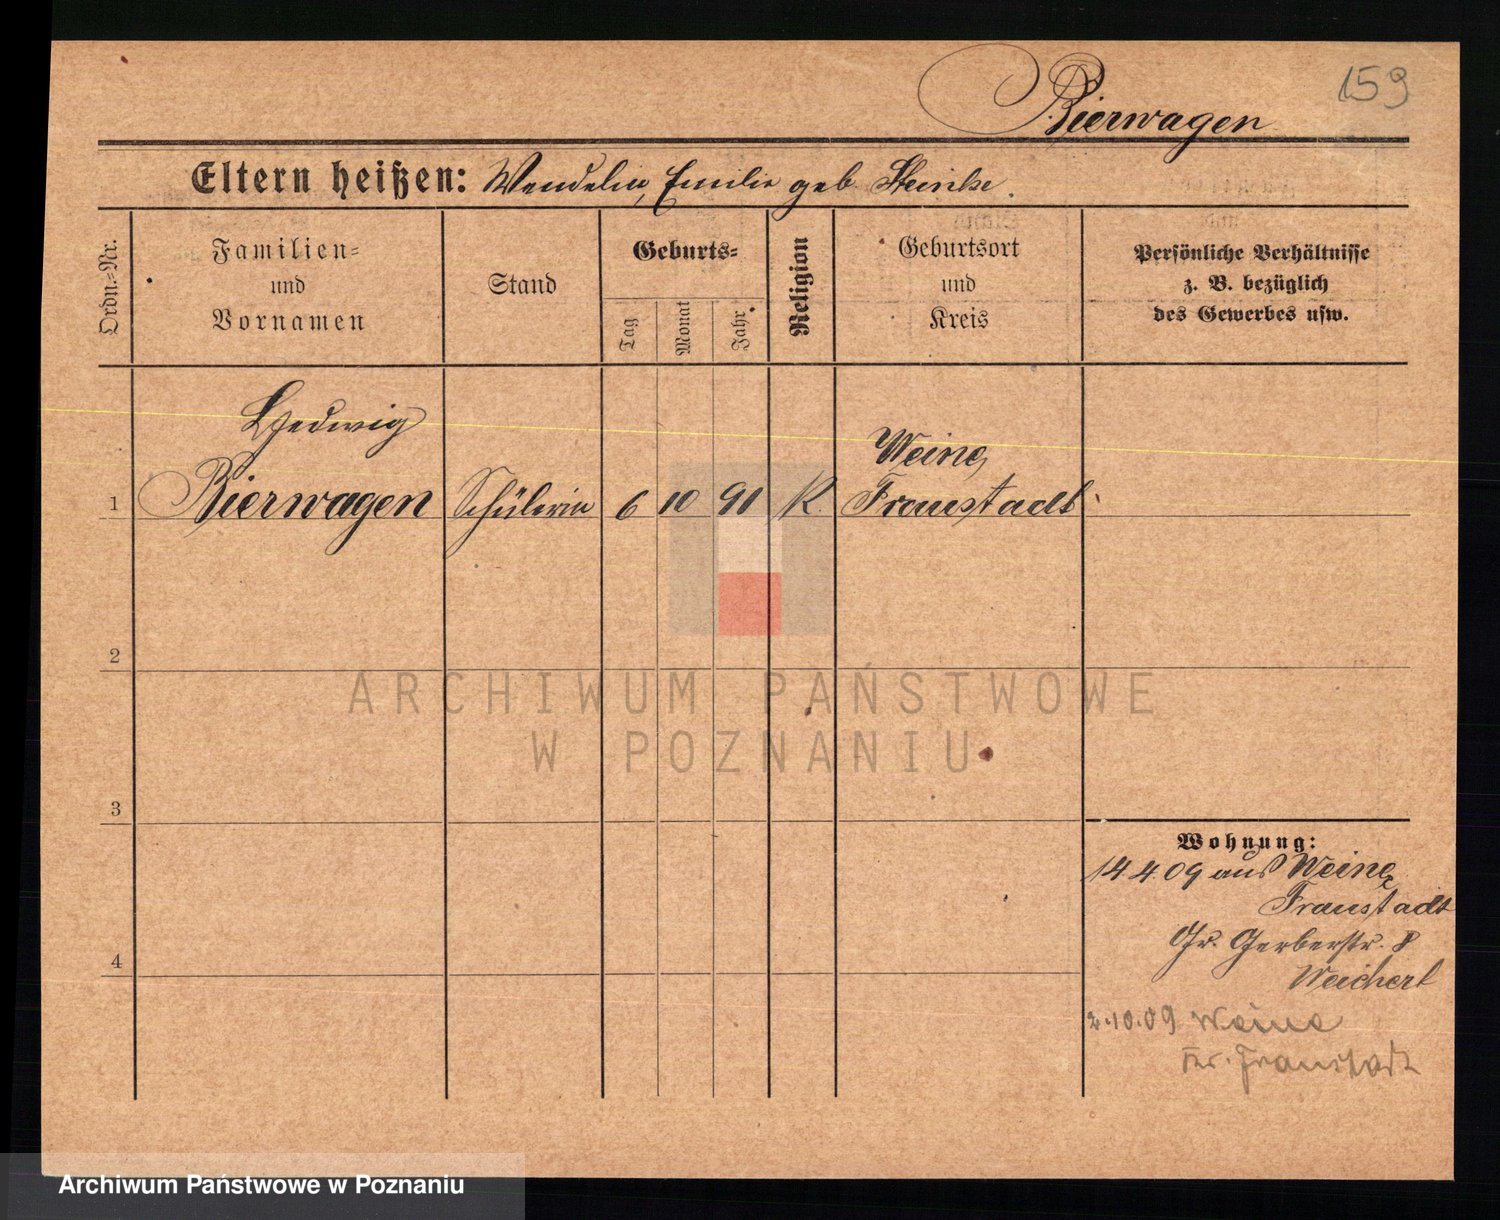 159
Bierwagen
Eltern heißen: Wendelin, Emilie geb. Steinke.
Ordn.-Nr.
Familien-
und
Vornamen
Stand
Geburts-
Tag
Monat
Jahr
Religion
Geburtsort
und
Kreis
Persönliche Verhältnisse
z. B. bezüglich
des Gewerbes usw.
Hedwig
Weine,
1 Bierwagen Schülerin 6 10 91 K. Fraustadt
2
3
4
Wohnung:
14.4.09 aus Weine,
Fraustadt
Gr. Gerberstr. 8
Weichert
2.10.09 Weine
Kr. Fraustadt
ARCHIWUM PAŃSTWOWE
W POZNANIU
Archiwum Państwowe w Poznaniu